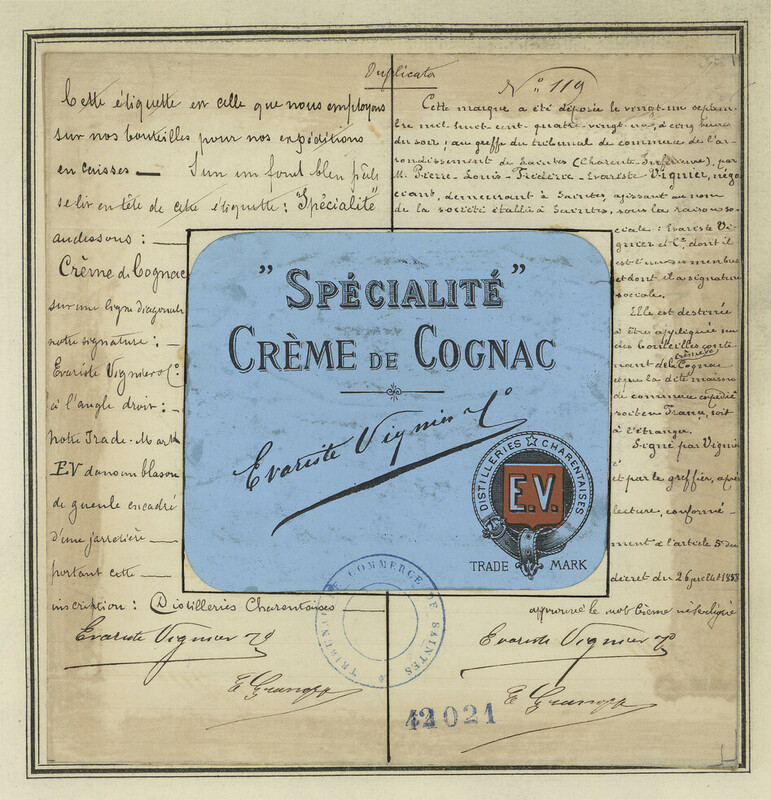 Duplicata
Cette étiquette est celle que nous employons
sur nos bouteilles pour nos expéditions
en caisses — Sur un fond bleu pâle
se lit en tête de cette étiquette : "Spécialité"
au dessous : —
Crème de Cognac
sur une ligne diagonale
notre signature : —
Evariste Vignier & Co
à l'angle droit : —
notre Trade-Mark
EV dans un blason
de gueule encadré
d'une jarretière —
portant cette —
inscription : Distilleries Charentaises —
Evariste Vignier & Co
N° 119
Cette marque a été déposée le vingt-un septem-
bre mil huit cent quatre-vingt- , à cinq heures
du soir, au greffe du tribunal de commerce de l'ar-
rondissement de Saintes (Charente-Inférieure), par
M. Pierre-Louis-Frédéric-Evariste Vignier, négo-
ciant, demeurant à Saintes, agissant au nom
de la société établie à Saintes, sous la raison so-
ciale : Evariste Vi-
gnier et Cie, dont il
est l'un des membres
et dont il a signature
sociale.
Elle est destinée
à être appliquée sur
des bouteilles conte-
nant de la crème de Cognac
et que la dite maison
de commerce expédie
soit en France, soit
à l'étranger.
Signé par Vignier
et par le greffier, après
lecture, conformé-
ment à l'article 5 du
décret du 26 juillet 1858
approuvé le mot crème
Evariste Vignier & Co
"SPÉCIALITÉ"
CRÈME DE COGNAC
Evariste Vignier & Co
DISTILLERIES ☆ CHARENTAISES
E.V.
TRADE MARK
TRIBUNAL DE COMMERCE DE SAINTES
42021